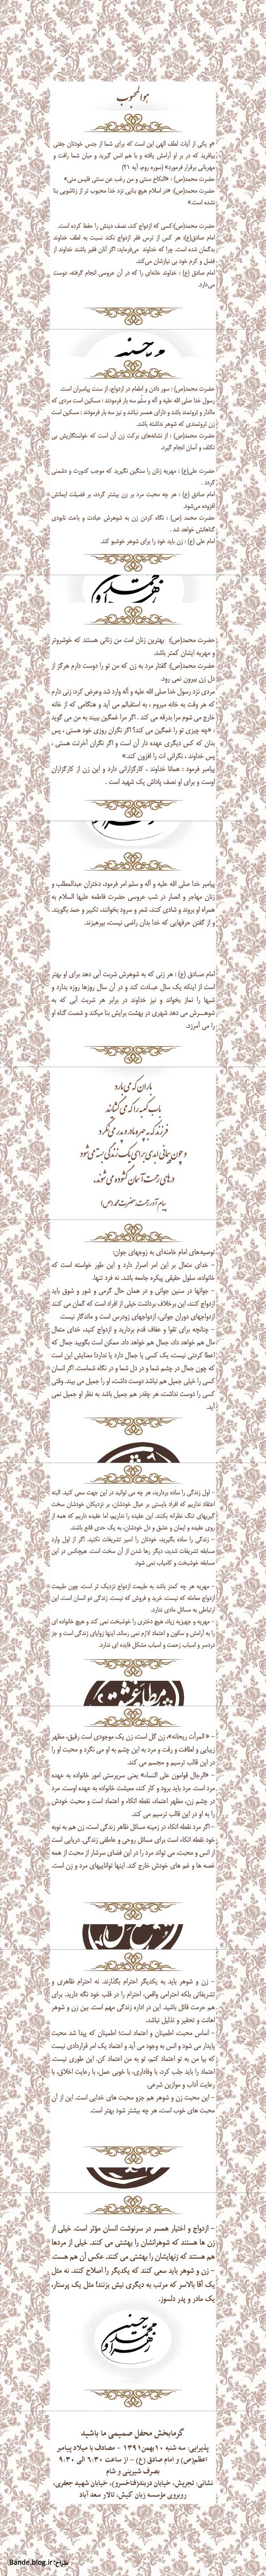 هوالمحبوب
«و یکی از آیات لطف الهی این است که برای شما از جنس خودتان جفتی
بیافرید که در بر او آرامش یافته و با هم انس گیرید و میان شما رافت و
مهربانی برقرار فرمود» (سوره روم، آیه ۲۱)
حضرت محمد(ص) : «النکاح سنتی و من رغب عن سنتی فلیس منی»
حضرت محمد(ص): «در اسلام هیچ بنایی نزد خدا محبوب تر از زناشویی بنا
نشده است.»
حضرت محمد(ص):کسی که ازدواج کند، نصف دینش را حفظ کرده است.
امام صادق(ع): هر کس از ترس فقر ازدواج نکند نسبت به لطف خداوند
بدگمان شده است. چرا که خداوند می‌فرماید: اگر آنان فقیر باشند خداوند از
فضل و کرم خود بی نیازشان می‌کند.
امام صادق (ع) : خداوند خانه‌ای را که در آن عروسی انجام گرفته، دوست
می‌دارد.
حضرت محمد(ص) : سور دادن و اطعام در ازدواج، از سنت پیامبران است.
رسول خدا صلی الله علیه و آله و سلم سه بار فرمودند : مسکین است مردی که
مالدار و ثروتمند باشد و دارای همسر نباشد و نیز سه بار فرمودند : مسکین است
زن ثروتمندی که شوهر نداشته باشد.
حضرت محمد(ص) : از نشانه‌های برکت زن آن است که خواستگاریش بی
تکلف و آسان انجام گیرد.
حضرت علی(ع) : مهریه زنان را سنگین نگیرید که موجب کدورت و دشمنی
گردد .
امام صادق (ع) : هر چه محبت مرد بر زن بیشتر گردد، بر فضیلت ایمانش
افزوده می‌شود.
حضرت محمد (ص) : نگاه کردن زن به شوهرش عبادت و باعث نابودی
گناهانش خواهد شد .
امام علی (ع) : زن باید خود را برای شوهر خوشبو کند.
حضرت محمد(ص): بهترین زنان امت من زنانی هستند که خوشروتر
و مهریه ایشان کمتر باشد.
حضرت محمد(ص): گفتار مرد به زن که من تو را دوست دارم هرگز از
دل زن بیرون نمی رود.
مردی نزد رسول خدا صلی الله علیه و آله وارد شد وعرض کرد: زنی دارم
که هر وقت به خانه میروم ، به استقبالم می آید و هنگامی که از خانه
خارج می شوم مرا بدرقه می کند . اگر مرا غمگین ببیند به من می گوید
: «چه چیزی تو را غمگین می کند؟ اگر نگران روزی خود هستی ، پس
بدان که کس دیگری عهده دار آن است و اگر نگران آخرتت هستی ،
پس خداوند ، نگرانی ات را افزون کند.»
پیامبر فرمود : همانا خداوند ، کارگزارانی دارد و این زن از کارگزاران
اوست و برای او نصف پاداش یک شهید است .
پیامبر خدا صلی الله علیه و آله و سلم امر فرمود، دختران عبدالمطلب و
زنان مهاجر و انصار در شب عروسی حضرت فاطمه علیها السلام به
همراه او بروند و شادی کنند، شعر و سرود بخوانند، تکبیر و حمد بگویند،
و از گفتن حرفهایی که خدا بدان راضی نیست، بپرهیزند.
امام صادق (ع) : هر زنی که به شوهرش شربت آبی دهد برای او بهتر
است از اینکه یک سال عبادت کند و در آن سال روزها روزه بدارد و
شبها را نماز بخواند و نیز خداوند در برابر هر شربت آبی که به
شوهرش می دهد شهری در بهشت برایش بنا میکند و شصت گناه او
را می آمرزد.
باران که می بارد
باب کعبه را که می گشایند
فرزند که به چهره مادر و پدر می نگرد
و چون پیمانی ابدی برای یک زندگی بسته می شود
درهای رحمت آسمان گشوده می شوند.
پیام آور رحمت؛ حضرت محمد (ص)
توصیه‌های امام خامنه‌ای به زوجهای جوان:
- خدای متعال بر این امر اصرار دارد و این طور خواسته است که
خانواده، سلول حقیقی پیکره جامعه باشد. نه فرد تنها.
- جوانها در سنین جوانی و در همان حال گرمی و شور و شوق باید
ازدواج کنند، این برخلاف برداشت خیلی از افراد است که گمان می کنند
ازدواجهای دوران جوانی، ازدواجهای زودرس است و ماندگار نیست.
- چنانچه برای تقوا و عفاف قدم بردارید و ازدواج کنید، خدای متعال
مال هم خواهد داد، جمال هم خواهد داد. ممکن است بگویید جمال که
اعطا کردنی نیست، یک کسی یا جمال دارد یا ندارد! معنایش این است
که چون جمال در چشم شما و در دل شما و در نگاه شماست. اگر انسان
کسی را خیلی جمیل هم نباشد دوست داشت، او را جمیل می بیند. وقتی
کسی را دوست نداشت، هر چقدر هم جمیل باشد به نظر او جمیل نمی
آید.
- اول زندگی را ساده بردارید، هر چه می توانید در این جهت سعی کنید. البته
اعتقاد نداریم که افراد بایستی بر عیال خودشان، بر نزدیکان خودشان سخت
گیریهای تنگ نظرانه بکنند. این عقیده را نداریم، اما عقیده داریم که همه از
روی عقیده و ایمان و عشق و دل خودشان، به یک حدی قانع باشند.
- زندگی را ساده بگیرید، خودتان را اسیر تشریفات نکنید. اگر از اول وارد
مسابقه تشریفات شدید، دیگر رها شدن از آن سخت است. هیچکس در این
مسابقه خوشبخت و کامیاب نمی شود.
- مهریه هر چه کمتر باشد به طبیعت ازدواج نزدیک تر است، چون طبیعت
ازدواج معامله که نیست، خرید و فروش که نیست، زندگی دو انسان است. این
ارتباطی به مسائل مادی ندارد.
- مهریه و جهیزیه زیاد، هیچ دختری را خوشبخت نمی کند و هیچ خانواده ای
را به آرامش و سکون و اعتماد لازم نمی رساند. اینها زوایای زندگی است و جز
دردسر و اسباب زحمت و اسباب مشکل فایده ای ندارد.
- « المرأت ریحانه»، زن گل است. زن یک موجودی است رقیق، مظهر
زیبایی و لطافت و رقت و مرد به این چشم به او می نگرد و محبت او را
در این قالب ترسیم و مجسم می کند.
- «الرجال قوامون علی النساء» یعنی سرپرستی امور خانواده به عهده
مرد است. مرد باید برود و کار کند، معیشت خانواده به عهده اوست. مرد
در چشم زن، مظهر اعتماد، نقطه اتکاء و اعتماد است و محبت خودش
را به او در این قالب ترسیم می کند.
- اگر مرد نقطه اتکاء در زمینه مسائل ظاهر زندگی است، زن هم به نوبه
خود نقطه اتکاء است برای مسائل روحی و عاطفی زندگی. دریایی است
از انس و محبت، می تواند مرد را در این فضای سرشار از محبت از همه
غصه ها و غم های خودش خارج کند. اینها تواناییهای مرد و زن است.
- زن و شوهر باید به یکدیگر احترام بگذارند. نه احترام ظاهری و
تشریفاتی بلکه احترامی واقعی. احترام را در قلب خود نگه دارید. برای
هم حرمت قائل باشید. این در اداره زندگی مهم است. بین زن و شوهر
اهانت و تحقیر و تذلیل نباشد.
- اساس محبت، اطمینان و اعتماد است؛ اطمینان که پیدا شد محبت
پایدار می شود و انس به وجود می آید و اعتماد یک امر قراردادی نیست
که بیا من به تو اعتماد کنم، تو به من اعتماد کن. این طوری نیست.
اعتماد را باید جلب کرد، با وفاداری، با خوبی عمل، با رعایت اخلاق، با
رعایت آداب و موازین شرعی.
- این محبت زن و شوهر هم جزو محبت های خدایی است. این از آن
محبت های خوب است، هر چه بیشتر شود بهتر است.
- ازدواج و اختیار همسر در سرنوشت انسان مؤثر است. خیلی از
زن ها هستند که شوهرانشان را بهشتی می کنند. خیلی از مردها
هم هستند که زنهایشان را بهشتی می کنند. عکس آن هم هست.
- زن و شوهر باید سعی کنند که یکدیگر را اصلاح کنند. نه مثل
یک آقا بالاسر که مرتب به دیگری نیش بزند! مثل یک پرستار،
یک مادر و پدر دلسوز.
گرمابخش محفل صمیمی ما باشید
پذیرایی: سه شنبه ۱۰بهمن۱۳۹۱ - مصادف با میلاد پیامبر
اعظم(ص) و امام صادق (ع) - از ساعت ۶:۳۰ الی ۹:۳۰
بصرف شیرینی و شام
نشانی: تجریش، خیابان دربند(فناخسرو)، خیابان شهید جعفری،
روبروی مؤسسه زبان کیش، تالار سعد آباد
طراح: Bande.blog.ir